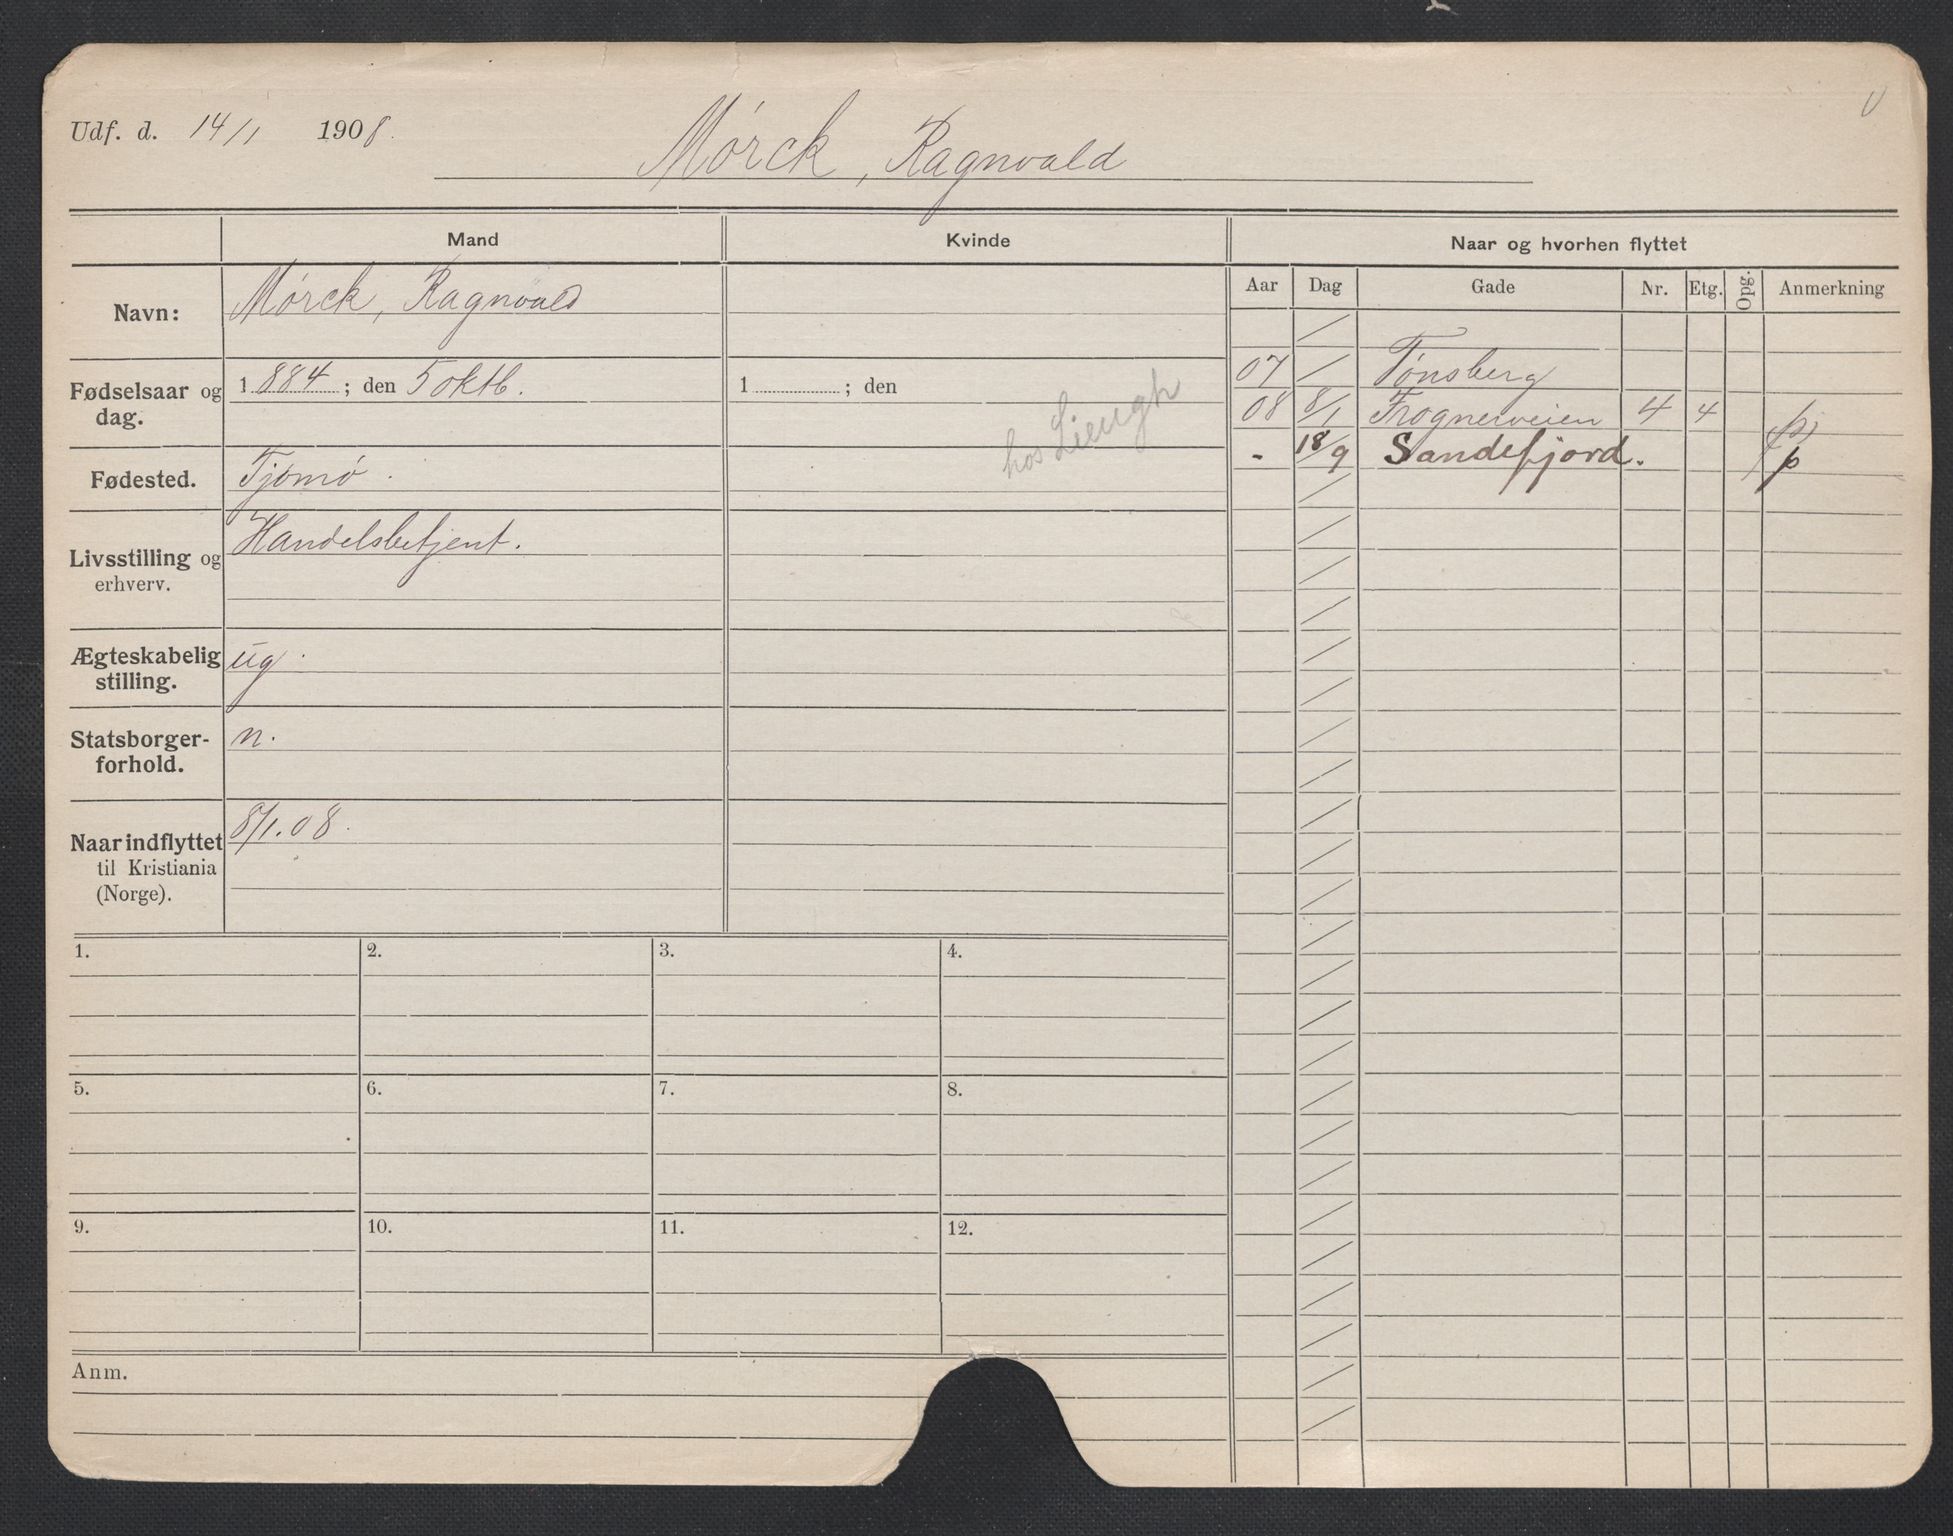 Udf. d. 14/1 1908.
Mørck, Ragnvald
Mand
Kvinde
Naar og hvorhen flyttet
Navn: Mørck, Ragnvald
Fødselsaar og dag. 1884; den 5 oktb.
1 ; den
Fødested. Tjømø.
Livsstilling og erhverv. Handelsbetjent.
Ægteskabelig stilling. ug.
Statsborgerforhold. n.
Naar indflyttet til Kristiania (Norge). 8/1.08.
Aar Dag Gade Nr. Etg. Opg. Anmerkning
07 / Tønsberg
08 8/1 Frognerveien 4 4
- 18/9 Sandefjord. p
1. 2. 3. 4.
5. 6. 7. 8.
9. 10. 11. 12.
Anm.
hos